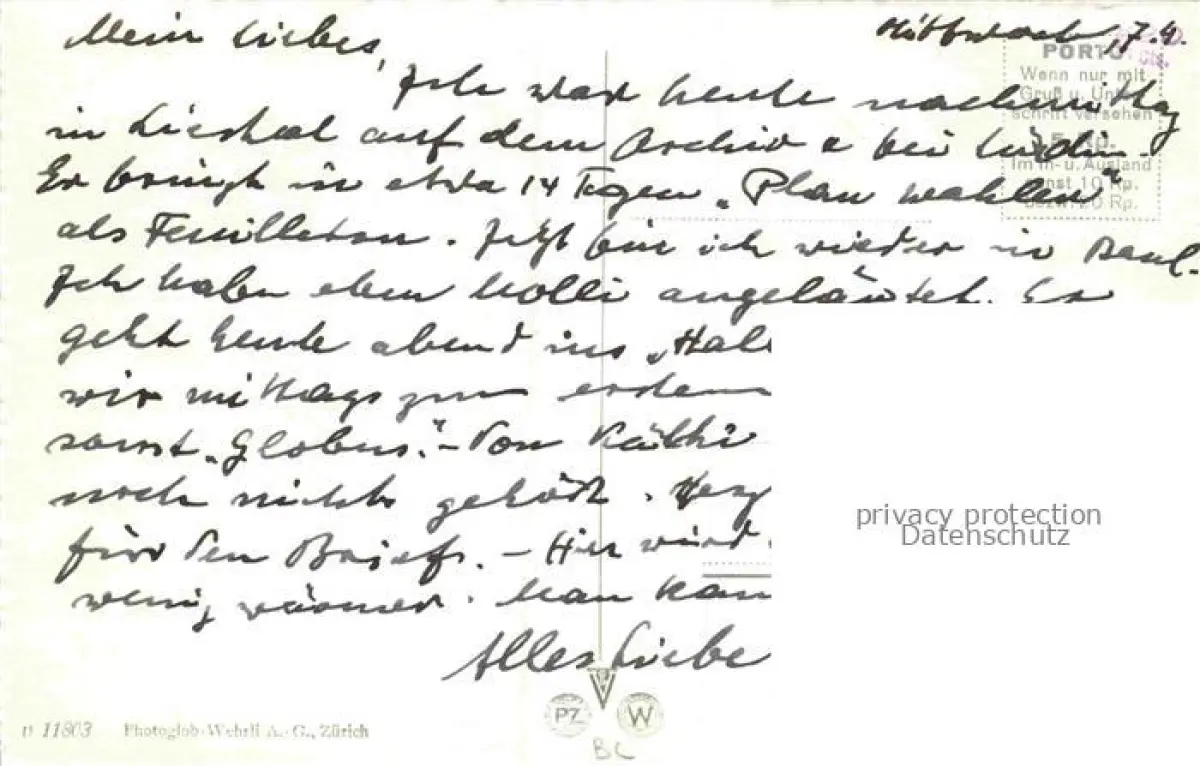 Mittwoch, 7.4.
Mein Liebes,
Ich war heute nachmittag
in Liestal auf dem Archiv & bei Lüdin.
Er bringt in etwa 14 Tagen „Plan wahlen"
als Feuilleton. Jetzt bin ich wieder in Basel.
Ich habe eben Kolli angeläutet. Er
geht heute abend ins „Hal
wir mittags zum ersten
sonst „Globus". – Von Käthi
noch nichts gehört.
für den Brief. – Hier wird
wenig wärmer. Man kan
Alles Liebe
PORTO
Wenn nur mit
Gruß u. Unter-
schrift versehen
5 Rp.
Im In- u. Ausland
sonst 10 Rp.
bezw. 20 Rp.
privacy protection
Datenschutz
PZ W
BC
v 11803 Photoglob-Wehrli A.-G., Zürich